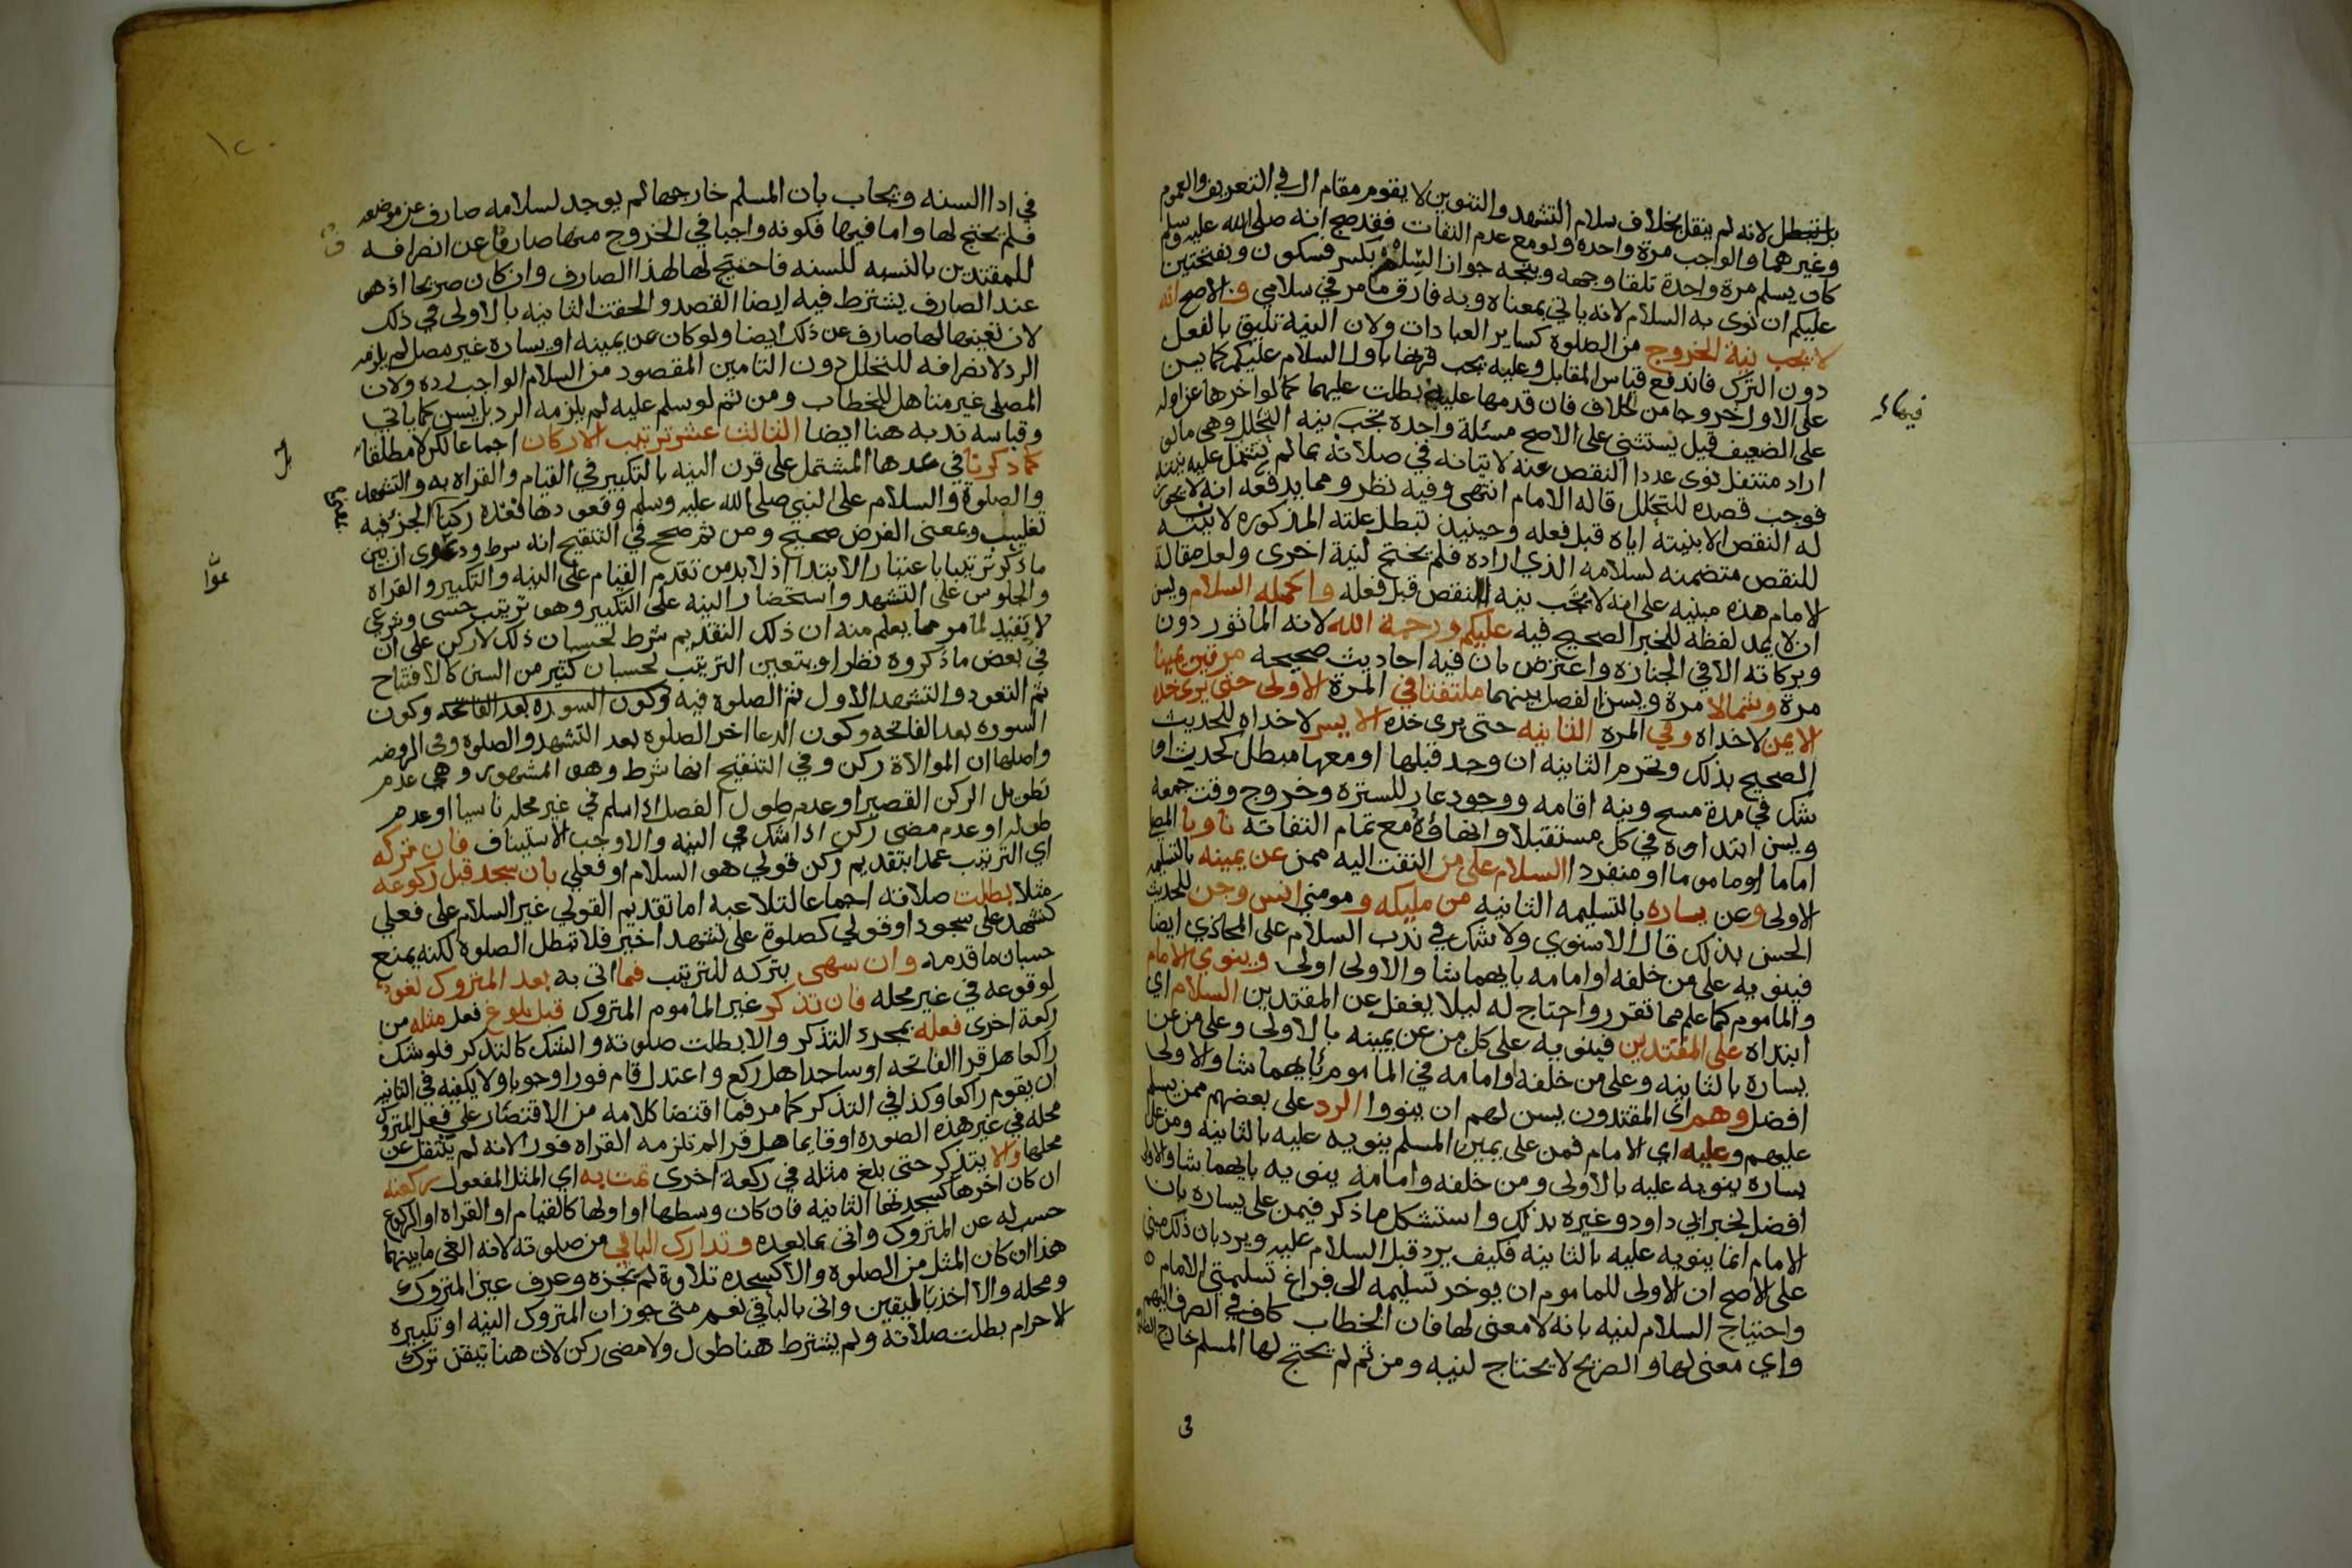 بل تبطل لانه لم ينقل بخلاف سلام التشهد والتنوين لا يقوم مقام ال في التعريف والعموم
وغيرهما والواجب مرة واحدة ولو مع عدم التفات فقد صح انه صلى الله عليه وسلم
كان يسلم مرة واحدة تلقا وجهه ويتجه جواز السلم بكسر فسكون وبفتحتين
عليكم ان نوى به السلام لانه ياتي بمعناه وبه فارق ما مر في سلامي والاصح انه
لا يجب نية الخروج من الصلوة كساير العبادات ولان النية تليق بالفعل
دون الترك فاندفع قياس المقابل وعليه يجب قرنها باول السلام عليكم كما يسن
على الاول خروجا من الخلاف فان قدمها عليه بطلت عليهما كما لو اخرها عن اوله
فيهما
على الضعيف قيل يستثنى على الاصح مسئلة واحدة تجب نيه التحلل وهي ما لو
اراد متنفل نوى عددا النقص عنه لاتيانه في صلاته بما لم تشتمل عليه نيته
فوجب قصده للتحلل قاله الامام انتهى وفيه نظر ومما يدفعه انه لا يجوز
له النقص الا بنيته اياه قبل فعله وحينيذ تبطل علته المذكورة لانيته
للنقص متضمنه لسلامه الذي اراده فلم يحتج لنية اخرى ولعل مقالة
الامام هذه مبنيه على انه لا تجب نيه النقص قبل فعله واكمله السلام ويسن
ان لا يمد لفظه للخبر الصحيح فيه عليكم ورحمة الله لانه الماثور دون
وبركاته الا في الجنازه واعترض بان فيه احاديث صحيحه مرتين يمينا
مرة وشمالا مرة ويسن الفصل بينهما ملتفتا في المرة الاولى حتى يرى خده
الايمن لا خداه وفي المرة الثانيه حتى يرى خده الايسر لا خداه للحديث
الصحيح بذلك وتحرم الثانيه ان وجد قبلها او معها مبطل كحدث او
شك في مدة مسح ونيه اقامه ووجود عار للسترة وخروج وقت جمعه
ويسن ابتداوه في كل مستقبلا وانهاوه مع تمام التفاته ناويا المصلي
اماما او ماموما او منفردا السلام على من التفت اليه ممن عن يمينه بالتسليمه
الاولى وعن يساره بالتسليمه الثانيه من مليكه ومومني انس وجن للحديث
الحسن بذلك قال الاسنوي ولا شك في ندب السلام على المحاذي ايضا
فينويه على من خلفه او امامه بايهما شا والاولى اولى وينوي الامام
والماموم كما علم مما تقرر واحتاج له ليلا يغفل عن المقتدين السلام اي
ابتداه على المقتدين فينويه على كل من عن يمينه بالاولى وعلى من عن
يساره بالثانيه وعلى من خلفه او امامه في الماموم بايهما شا والاولى
افضل وهم اي المقتدون يسن لهم ان ينووا الرد على بعضهم ممن يسلم
عليهم وعليه اي الامام فمن على يمين المسلم ينويه عليه بالثانيه ومن على
يساره ينويه عليه بالاولى ومن خلفه وامامه ينويه بايهما شا والاولى
افضل لخبر ابي داود وغيره بذلك واستشكل ما ذكر فيمن على يساره بان
الامام انما ينويه عليه بالثانيه فكيف يرد قبل السلام عليه ويرد بان ذلك مبني
على الاصح ان الاولى للماموم ان يوخر تسليمه الى فراغ تسليمتي الامام
واحتياج السلام لنيه بانه لا معنى لها فان الخطاب كاف في الصرف اليهم
واي معنى لها والصريح لا يحتاج لنيه ومن ثم لم يحتج لها المسلم خارج الصلاة
في
١٢٠
في ادا السنه ويجاب بان المسلم خارجها لم يوجد لسلامه صارف عن موضوعه
فلم يحتج لها واما فيها فكونه واجبا في الخروج منها صارفا عن انصرافه
للمقتدين بالنسبه للسنه فاحتيج لها لهذا الصارف وان كان صريحا اذ هو
عند الصارف يشترط فيه ايضا القصد والحقت الثانيه بالاولى في ذلك
لان تعينها لها صارف عن ذلك ايضا ولو كان عن يمينه او يساره غير مصل لم يلزمه
الرد لانصرافه للتحلل دون التامين المقصود من السلام الواجب رده ولان
المصلي غير متاهل للخطاب ومن ثم لو سلم عليه لم يلزمه الرد بل يسن كما ياتي
وقياسه ندبه هنا ايضا الثالث عشر ترتيب الاركان اجماعا لكن لا مطلقا
كما ذكرنا في عدها المشتمل على قرن النيه بالتكبير في القيام والقراه به والتشهد
والصلوة والسلام على النبي صلى الله عليه وسلم وقعودها فعده ركنا الجز فيه
تغليب وبمعنى الفرض صحيح ومن ثم صحح في التنقيح انه شرط ودعوى ان بين
ما ذكر ترتيبا باعتبار الابتدا اذ لا بد من تقدم القيام على النيه والتكبير والقراه
والجلوس على التشهد واستحضار النيه على التكبير وهو ترتيب حسي وشرعي
لا يفيد لما مر مما يعلم منه ان ذلك التقديم شرط لحسبان ذلك لا ركن على ان
في بعض ما ذكروه نظرا ويتعين الترتيب لحسبان كثير من السنن كالافتتاح
ثم التعوذ والتشهد الاول ثم الصلوة فيه وكون السوره بعد الفاتحه وكون
السوره بعد الفاتحه وكون الدعا اخر الصلوة بعد التشهد والصلوة وفي الروضه
واصلها ان الموالاة ركن وفي التنقيح انها شرط وهو المشهور وهي عدم
تطويل الركن القصير او عدم طول الفصل اذا سلم في غير محله ناسيا او عدم
طوله او عدم مضي ركن اذا شك في النيه والاوجب الاستيناف فان تركه
اي الترتيب عمدا بتقديم ركن قولي هو السلام او فعلي بان سجد قبل ركوعه
مثلا بطلت صلاته اجماعا لتلاعبه اما تقديم القولي غير السلام على فعلي
كتشهد على سجود او قولي كصلوة على تشهد اخير فلا تبطل الصلوة لكنه يمنع
حسبان ما قدمه وان سهى بتركه للترتيب فما اتى به بعد المتروك لغو
لوقوعه في غير محله فان تذكر غير الماموم المتروك قبل بلوغ فعل مثله من
ركعة اخرى فعله بمجرد التذكر والا بطلت صلوته والشك كالتذكر فلو شك
راكعا هل قرا الفاتحه او ساجدا هل ركع واعتدل قام فورا وجوبا ولا يكفيه في الثانيه
ان يقوم راكعا وكذا في التذكر كما مر فما اقتضا كلامه من الاقتصار على فعل المتروك
محله في غير هذه الصوره او قايما هل قرا لم تلزمه القراه فورا لانه لم ينتقل عن
محلها والا يتذكر حتى بلغ مثله في ركعة اخرى تمت به اي المثل المفعول ركعته
ان كان اخرها كسجدتها الثانيه فان كان وسطها او اولها كالقيام او القراه او الركوع
حسب له عن المتروك واتى بما بعده وتدارك الباقي من صلوته لانه الغى ما بينهما
هذا ان كان المثل من الصلوة والا كسجده تلاوة لم تجزه وعرف عين المتروك
ومحله والا اخذ باليقين واتى بالباقي نعم متى جوز ان المتروك النيه او تكبيره
الاحرام بطلت صلاته ولم يشترط هنا طول ولا مضى ركن لان هنا تيقن ترك